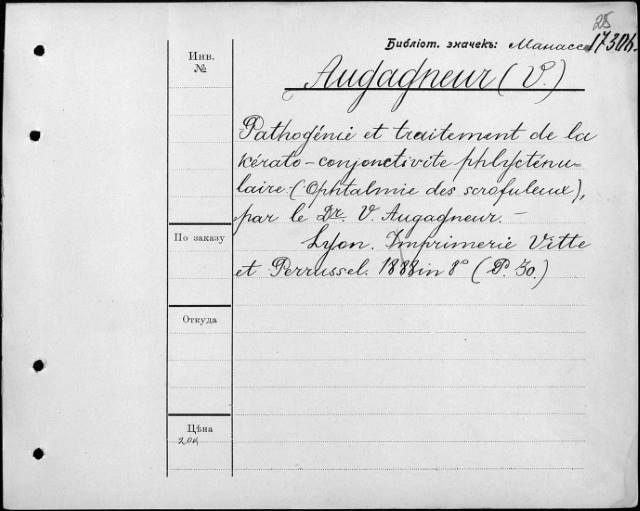 25
Библіот. значекъ: Манасс 17304.
Инв.
№
Augagneur (V.)
Pathogénie et traitement de la
kérato-conjonctivite phlycténu-
laire. (Ophtalmie des scrofuleux),
par le Dr. V. Augagneur. –
По заказу
Lyon. Imprimerie Vitte
et Perrussel. 1888 in 8° (P. 30.)
Откуда
Цѣна
20к